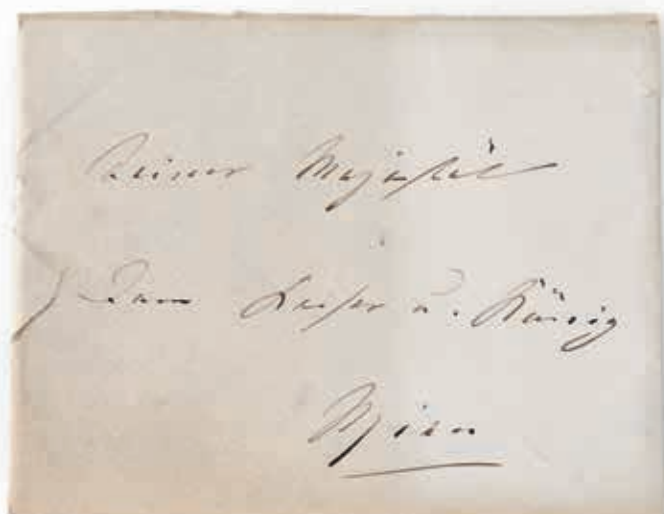 Seiner Majestät
dem Kaiser u. König
Wien